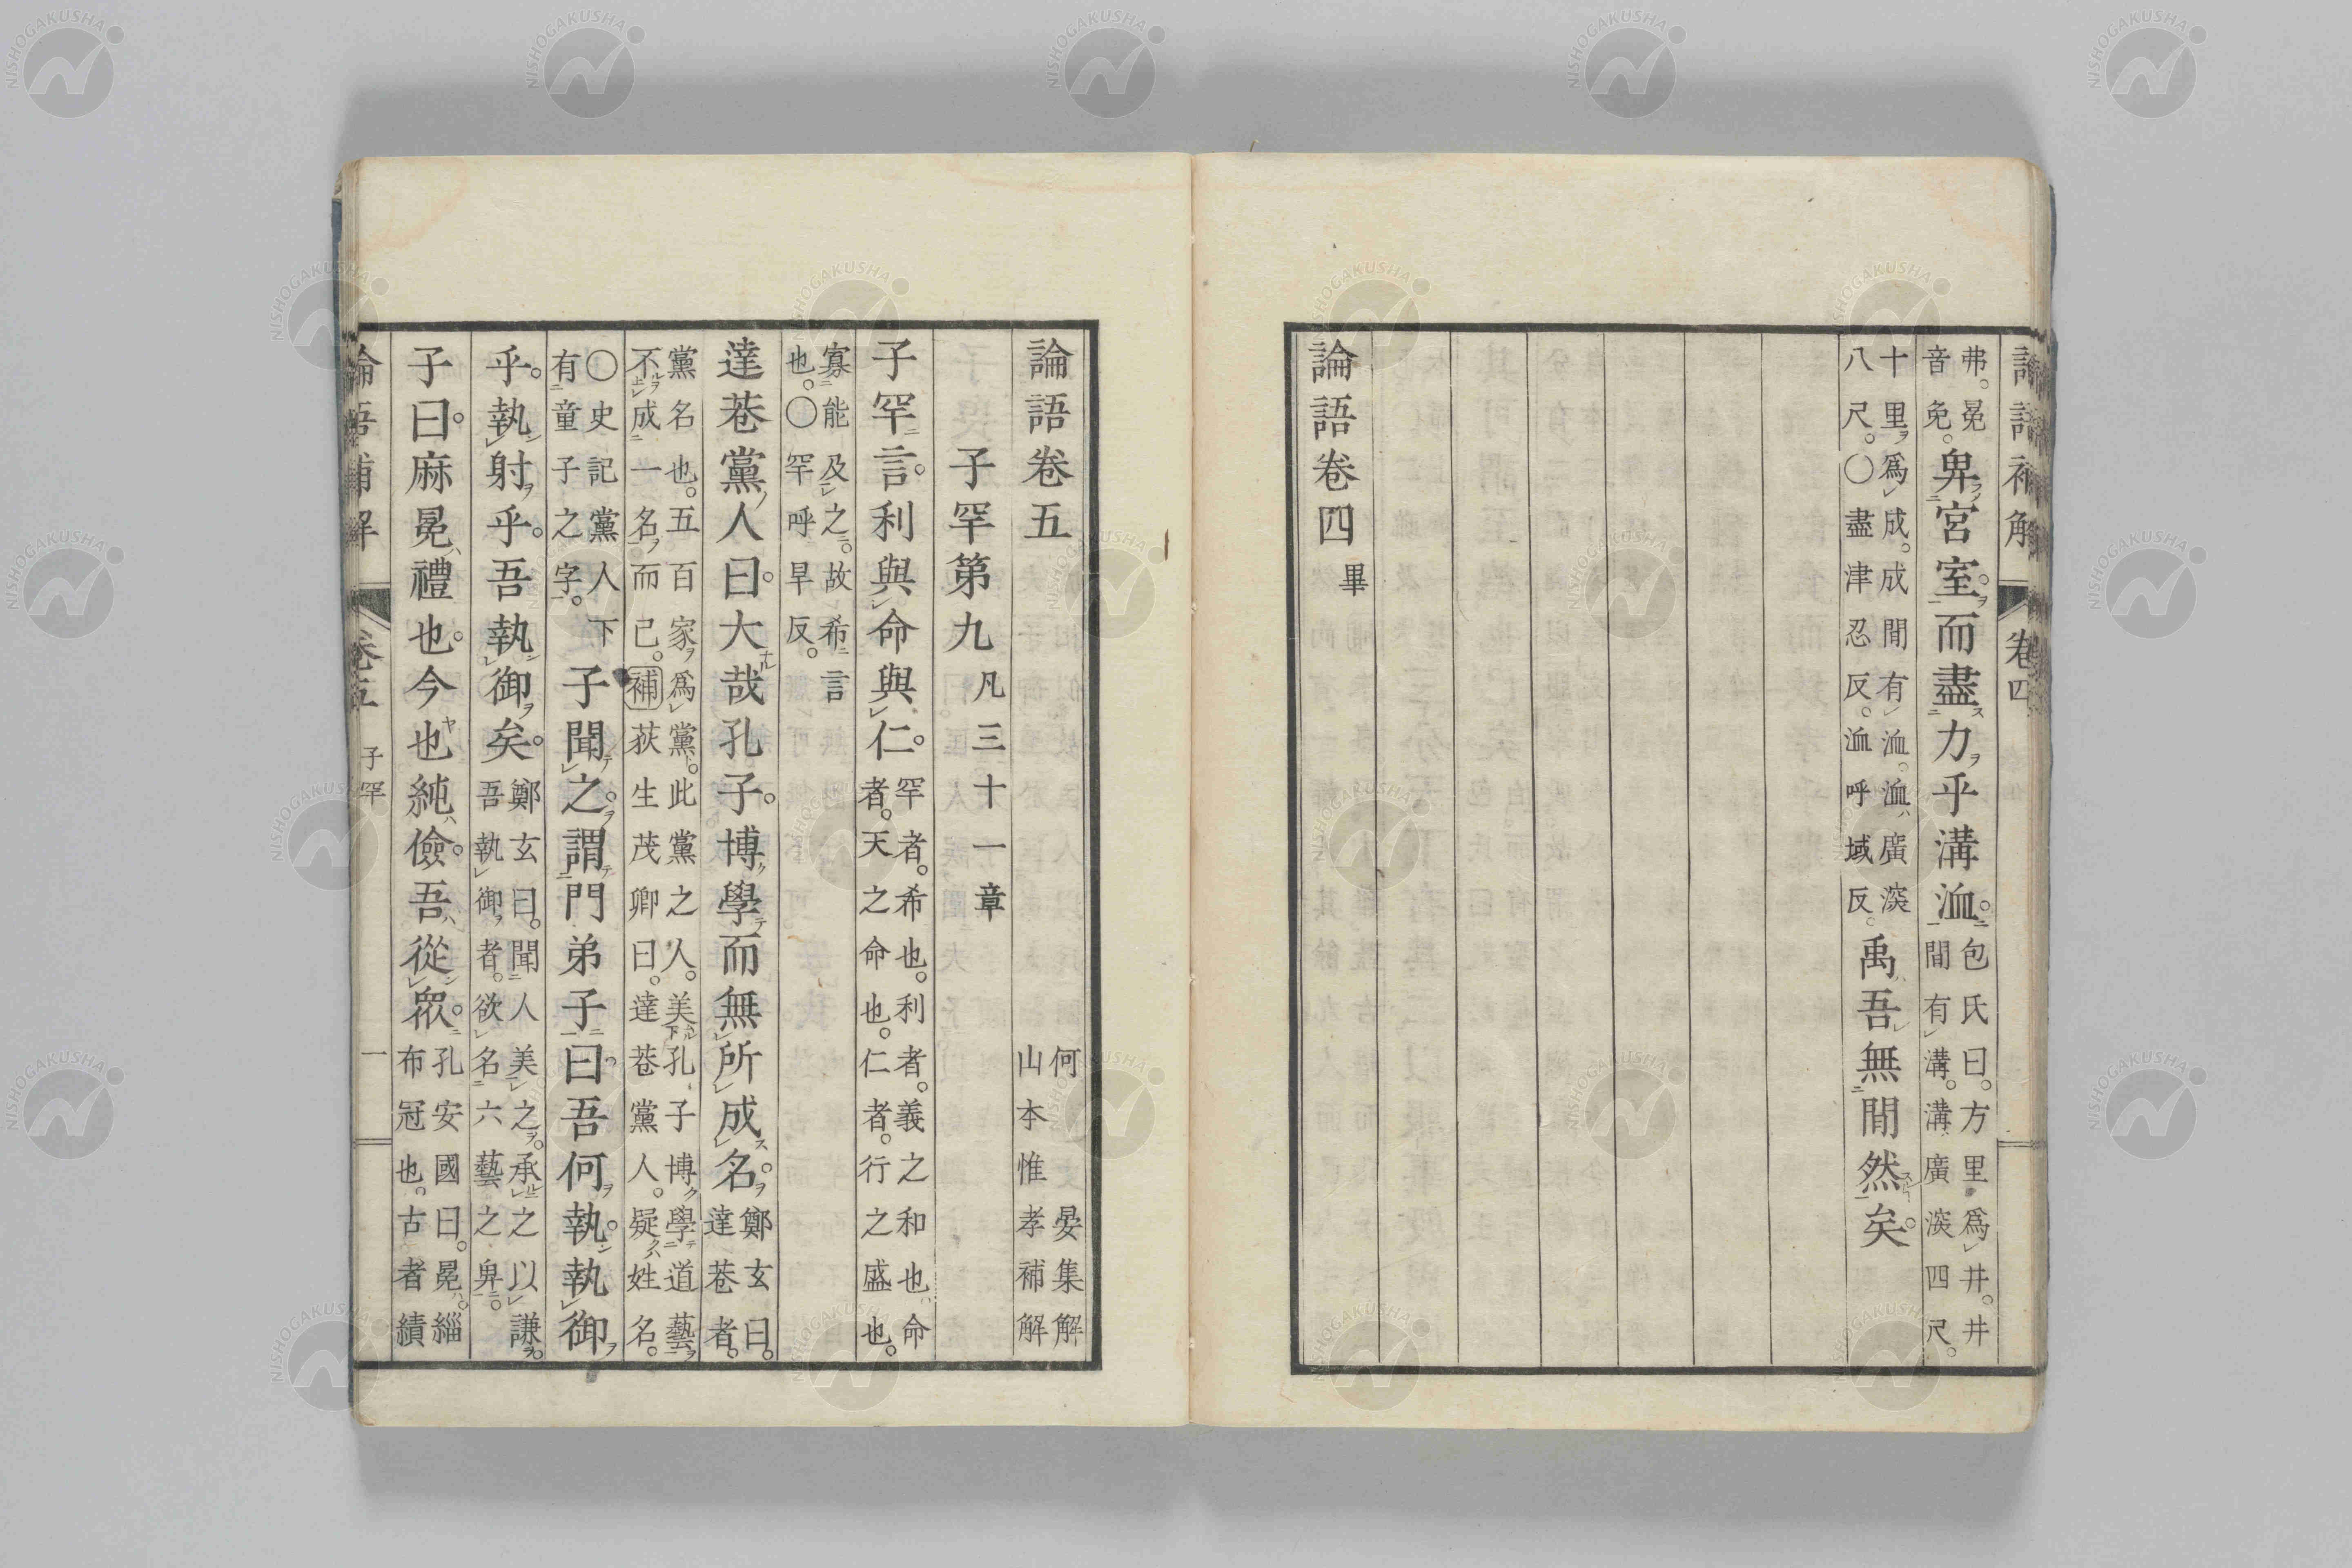 論語補解 卷四
弗。冕音免。卑宮室。而盡力乎溝洫。包氏曰。方里爲井。井間有溝。溝廣深四尺。
十里爲成。成間有洫。洫廣深八尺。〇盡津忍反。洫呼域反。禹吾無間然矣。
論語卷四 畢
論語卷五 何晏集解 山本惟孝補解
子罕第九 凡三十一章
子罕言。利與命與仁。罕者。希也。利者。義之和也。命者。天之命也。仁者。行之盛也。
寡能及之。故希言也。〇罕呼旱反。
達巷黨人曰。大哉孔子。博學而無所成名。鄭玄曰。達巷者。
黨名也。五百家爲黨。此黨之人。美孔子博學道藝不成一名而已。補荻生茂卿曰。達巷黨人。疑姓名。
〇史記黨人下有童子之字。子聞之。謂門弟子曰吾何執。執御
乎。執射乎。吾執御矣。鄭玄曰。聞人美之。承之以謙。吾執御者。欲名六藝之卑。
子曰。麻冕禮也。今也純儉。吾從眾。孔安國曰。冕。緇布冠也。古者績
論語補解 卷五 子罕 一
NISHOGAKUSHA